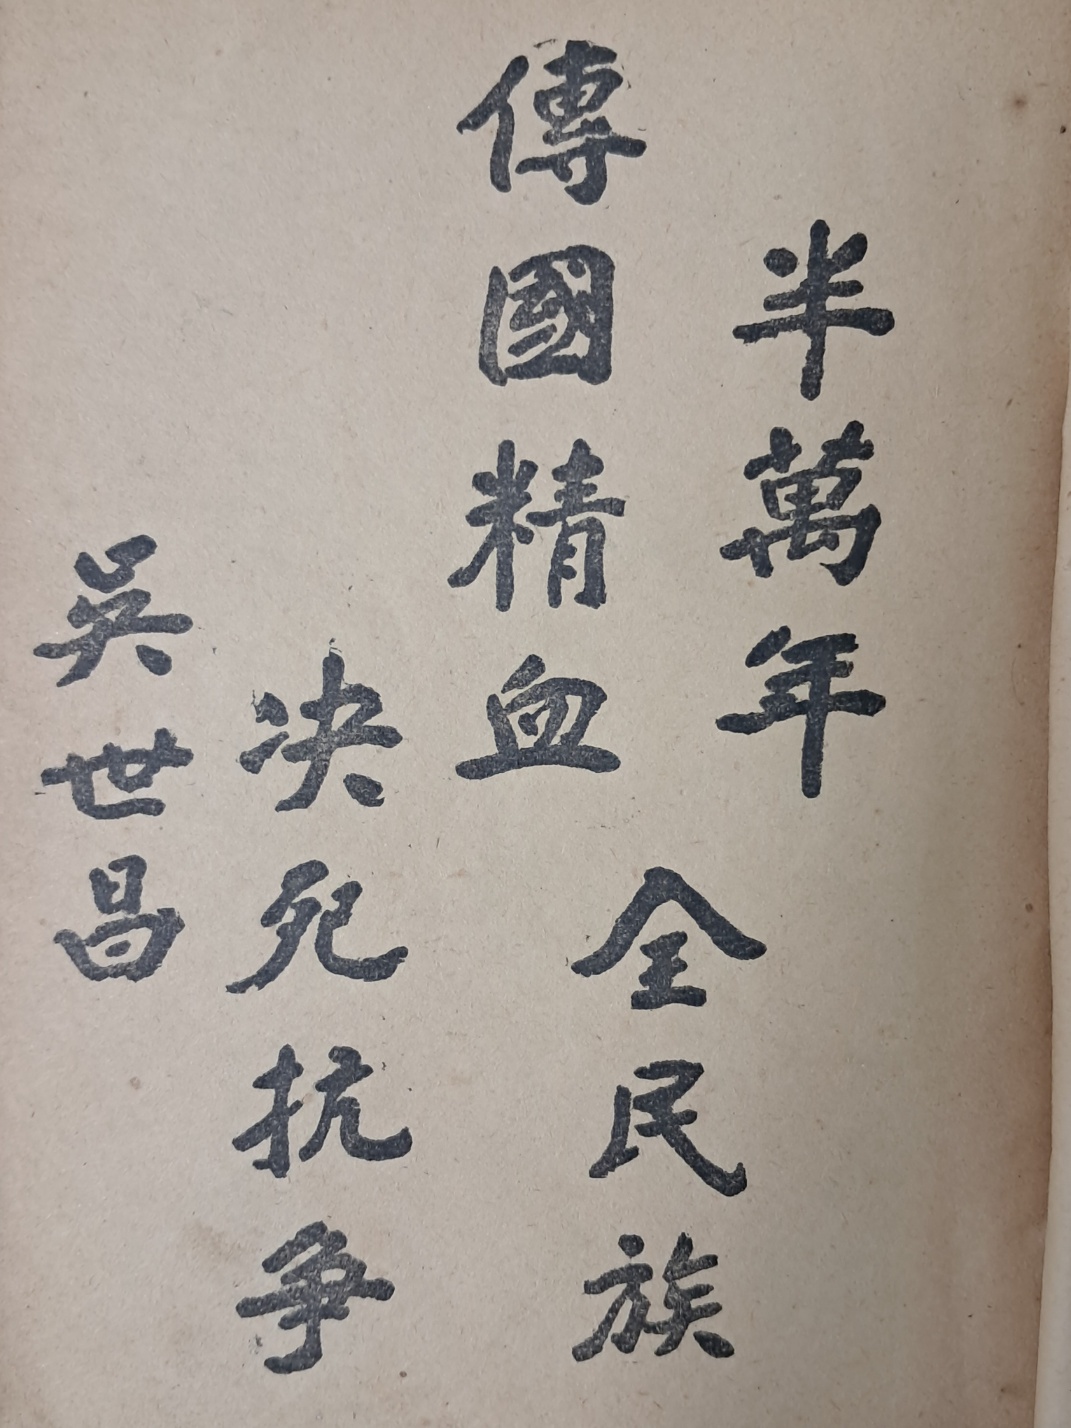 半萬年
傳國精血
全民族
决死抗爭
吳世昌